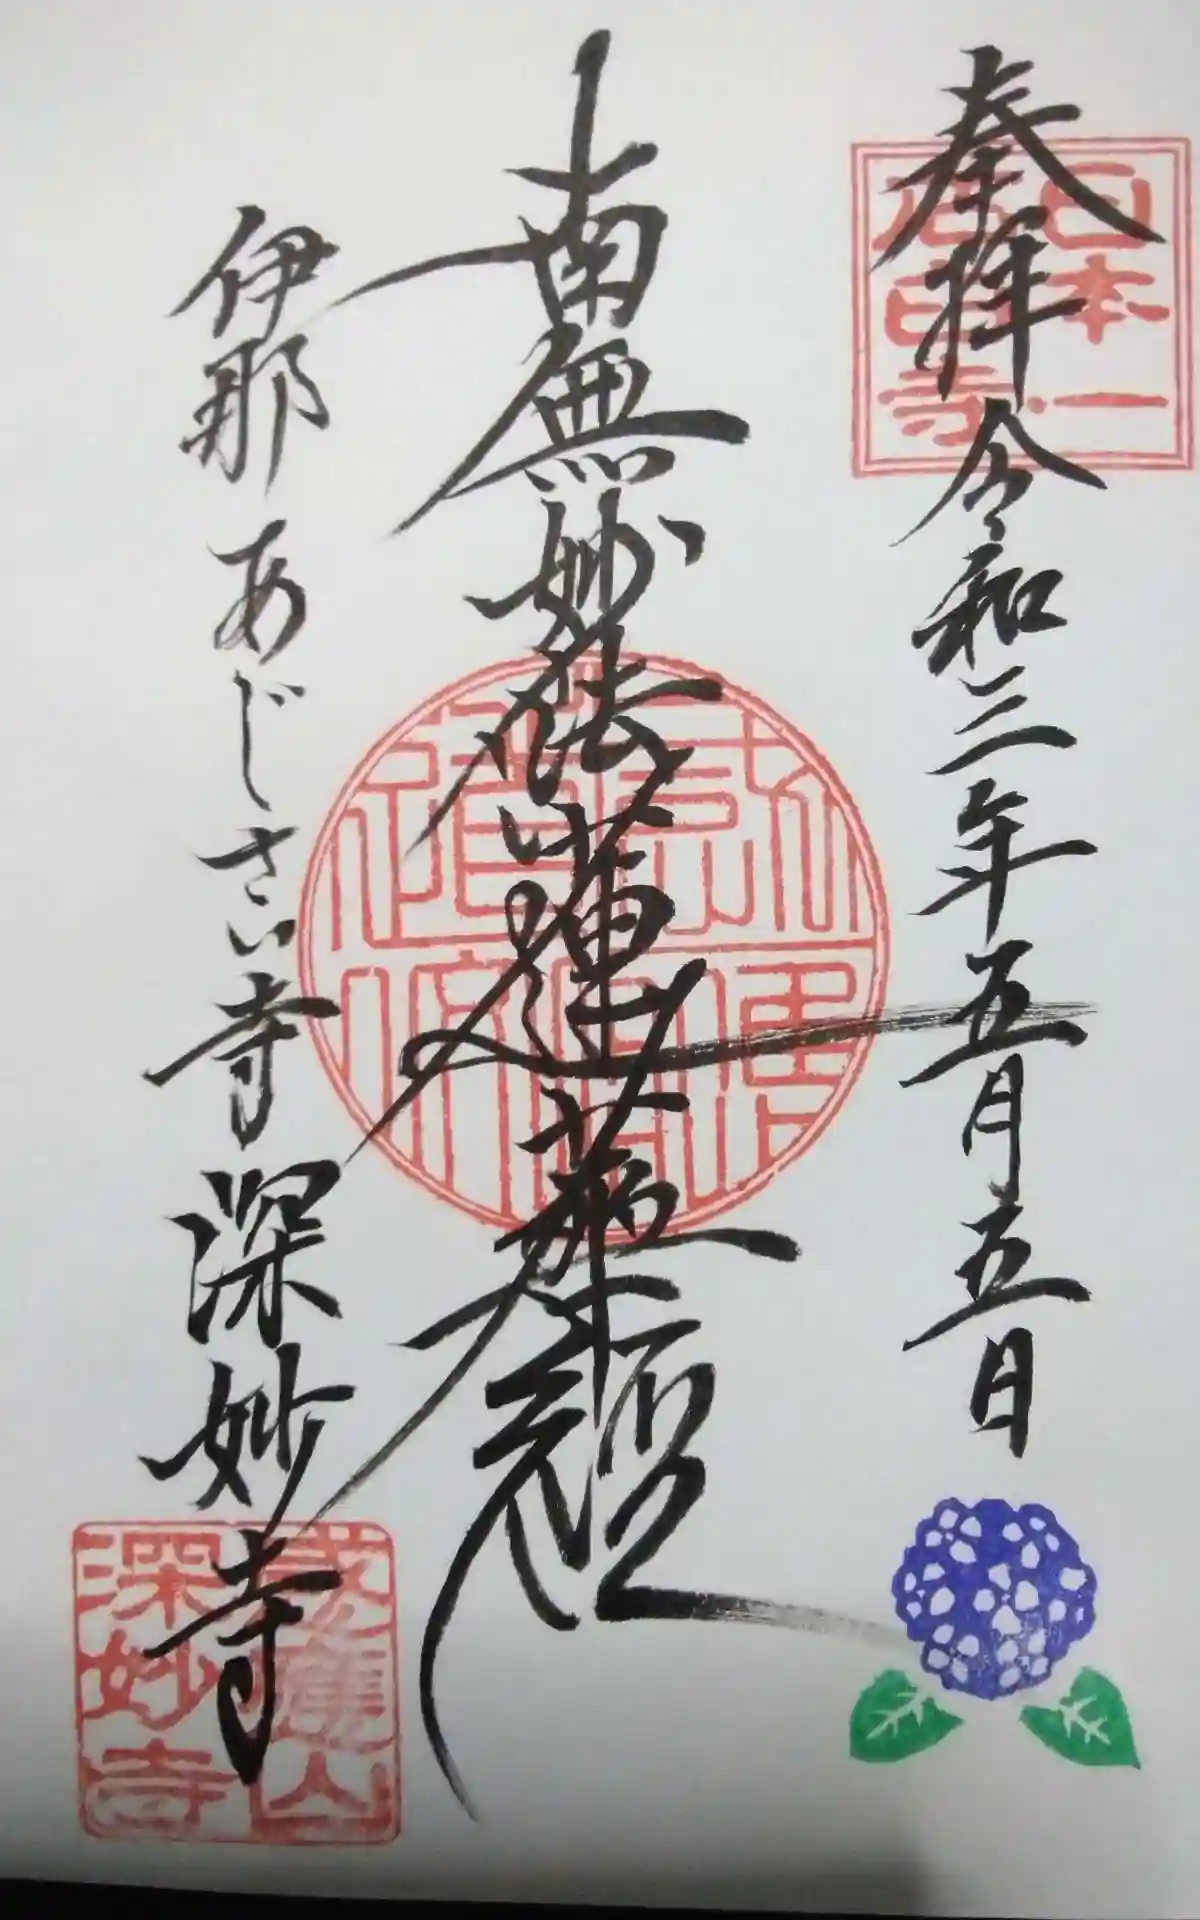 奉拝 令和三年五月五日
南無妙法蓮華経
伊那 あじさい寺 深妙寺
日本一
深妙寺